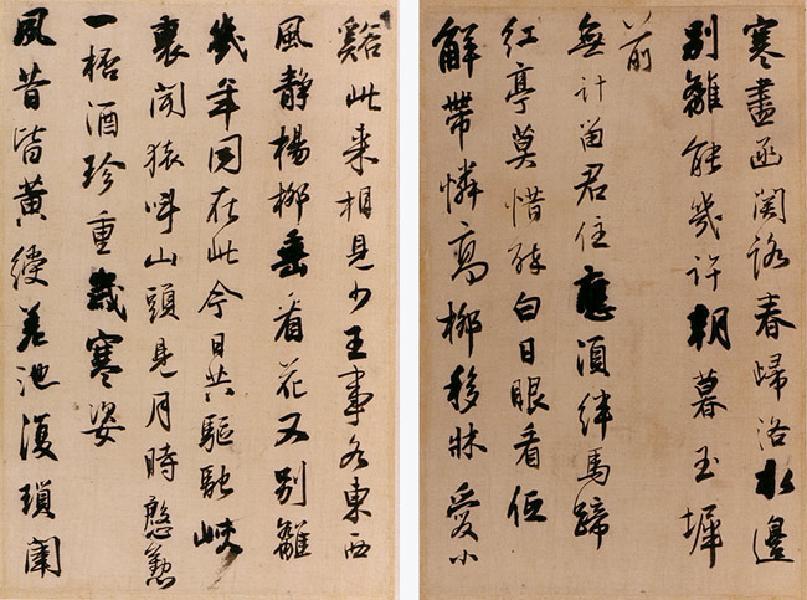 寒盡函關路春歸洛水邊
別離能幾許朝暮玉墀
前
無計留君住應須絆馬蹄
紅亭莫惜醉白日眼看低
解帶憐高柳移牀愛小
谿此来相見少王事各東西
風靜楊柳垂看花又別離
幾年同在此今日共驅馳峽
裏聞猿叫山頭見月時慇懃
一桮酒珍重歲寒姿
夙昔皆黃綬差池復瑣闈